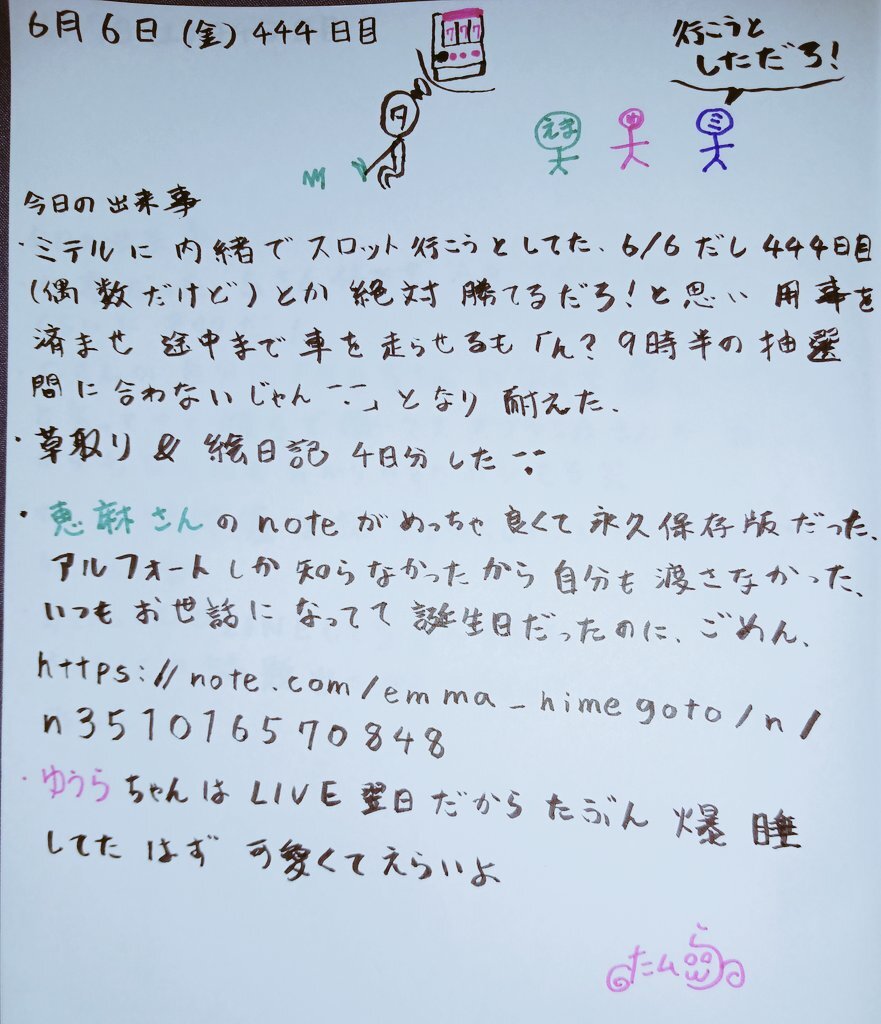 6月6日(金)444日目
777
タ
行こうと
しただろ!
えま
ゆ
ミ
今日の出来事
・ミテルに内緒でスロット行こうとしてた、6/6だし444日目
(偶数だけど)とか絶対勝てるだろ!と思い用事を
済ませ途中まで車を走らせるも「ん?9時半の抽選
間に合わないじゃん」となり耐えた、
・草取り&絵日記4日分した
・恵麻さんのnoteがめっちゃ良くて永久保存版だった、
アルフォートしか知らなかったから自分も渡さなかった、
いつもお世話になってて誕生日だったのに、ごめん、
https://note.com/emma_himegoto/n/
n351016570848
・ゆうらちゃんはLIVE翌日だからたぶん爆睡
してたはず可愛くてえらいよ
たム